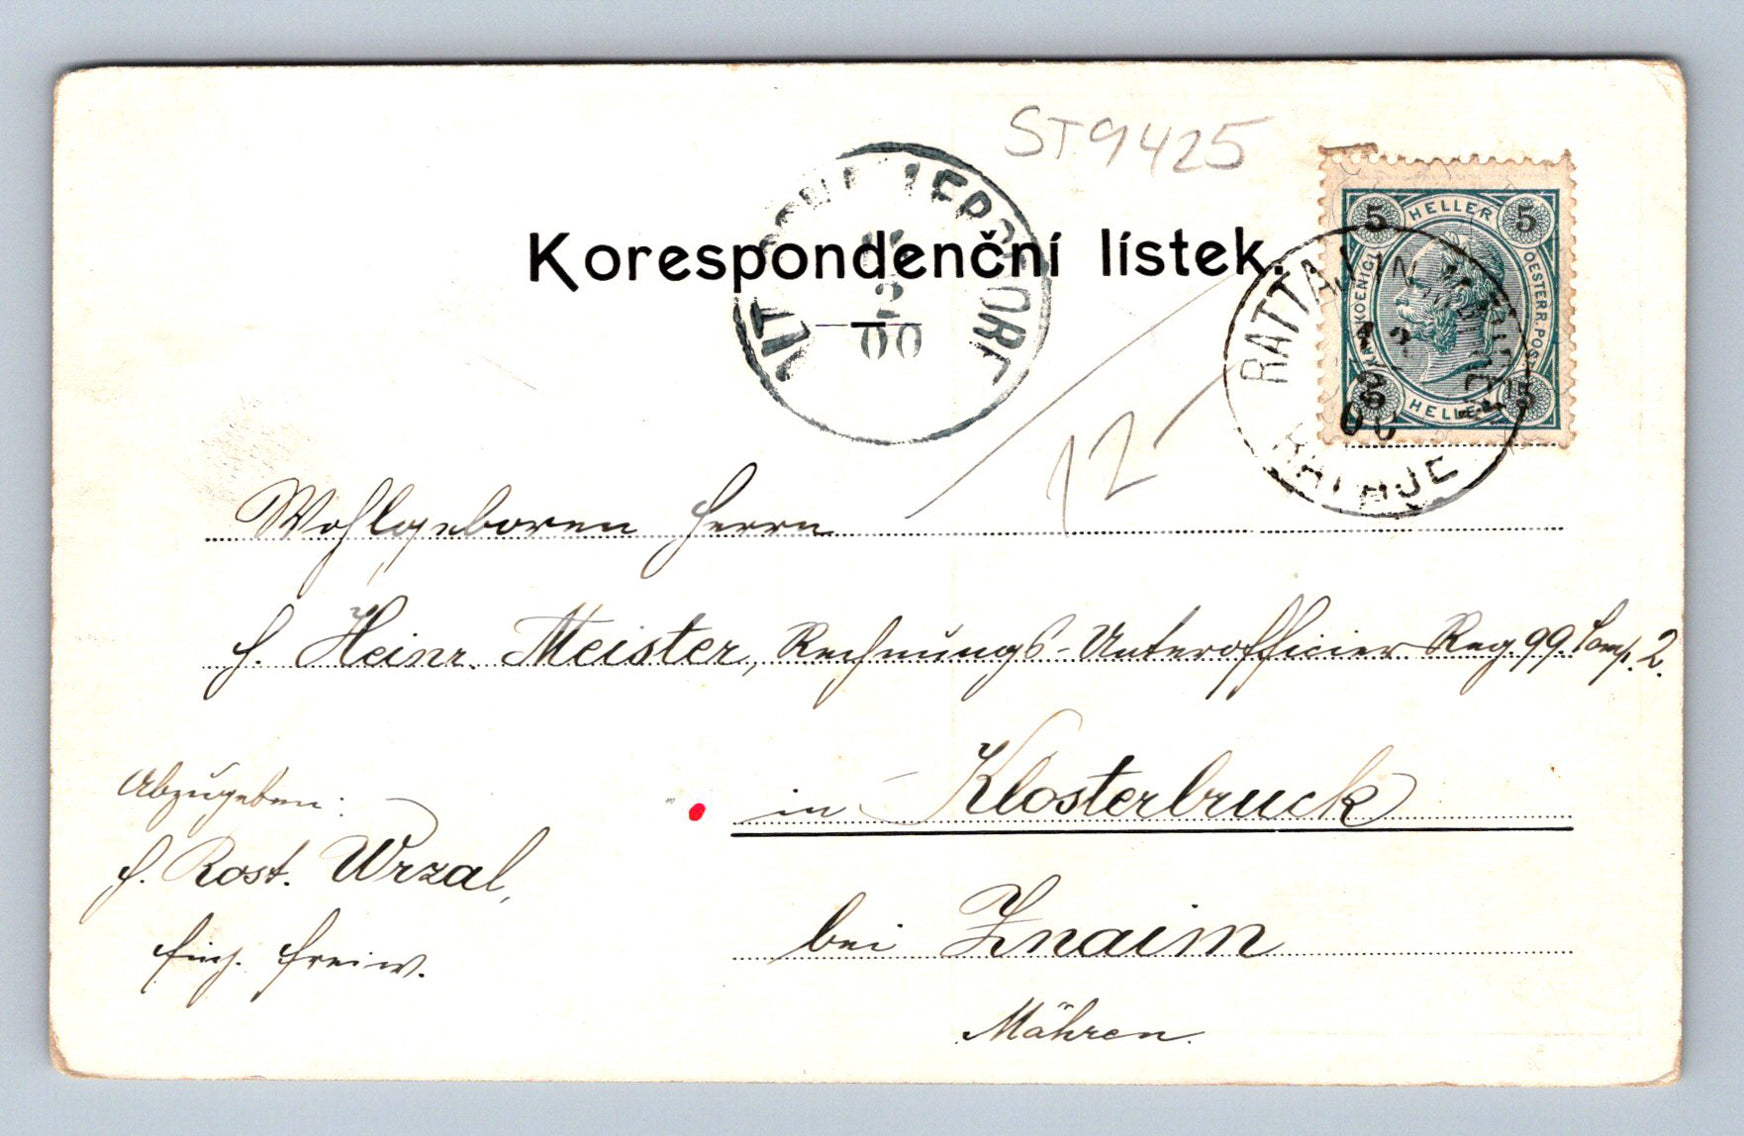 ST9425
Korespondenční lístek.
5 HELLER 5
KAIS. KOENIGL.
OESTERR. POST
HELLER
RATTAY IN
2
00
12
Wohlgeboren Herrn
H. Heinr. Meister, Rechnungs-Unterofficier Reg. 99. Comp. 2.
in Klosterbruck
bei Znaim
Mähren.
Abzugeben:
H. Rost. Wrzal,
Einj. Freiw.